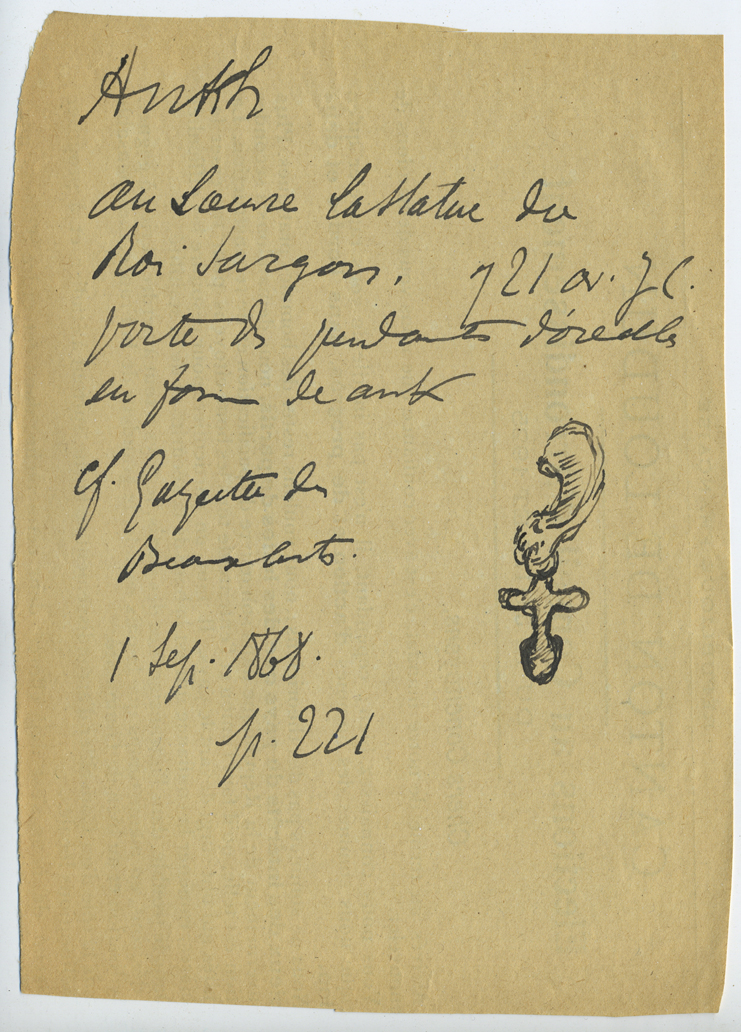 Ankh
au Louvre la statue du
Roi Sargon, 721 av. J C.
porte des pendants d'oreilles
en forme de ank
cf. Gazette des
Beaux Arts.
1 Sep. 1868.
p. 221